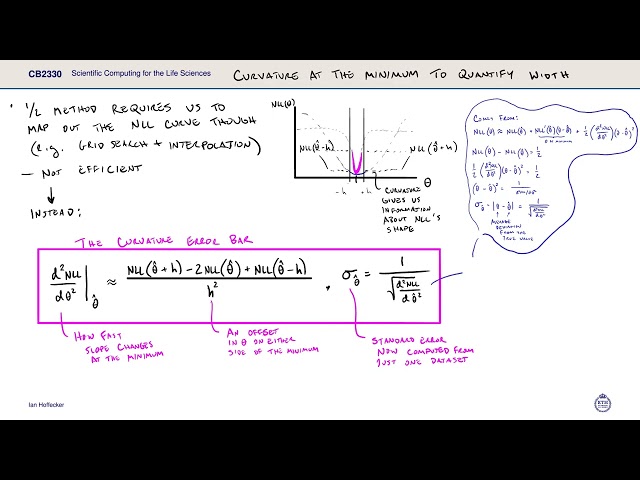 CB2330 Scientific Computing for the Life Sciences
CURVATURE AT THE MINIMUM TO QUANTIFY WIDTH
• 1/2 METHOD REQUIRES US TO
MAP OUT THE NLL CURVE THOUGH
(e.g. GRID SEARCH + INTERPOLATION)
— NOT EFFICIENT
↓
INSTEAD:
NLL(θ)
NLL(θ̂-h)
NLL(θ̂+h)
-h +h θ
CURVATURE
GIVES US
INFORMATION
ABOUT NLL'S
SHAPE
COMES FROM:
NLL(θ) ≈ NLL(θ̂) + NLL'(θ̂)(θ-θ̂) + 1/2 (d²NLL/dθ²)(θ-θ̂)²
0 AT MINIMUM
NLL(θ) - NLL(θ̂) = 1/2
1/2 (d²NLL/dθ²)(θ-θ̂)² = 1/2
(θ-θ̂)² = 1/(d²NLL/dθ²)
σ_θ̂ = |θ-θ̂| = 1/√(d²NLL/dθ²)
AVERAGE
DEVIATION
FROM THE
TRUE VALUE
THE CURVATURE ERROR BAR
d²NLL/dθ² |_θ̂ ≈ (NLL(θ̂+h) - 2NLL(θ̂) + NLL(θ̂-h))/h² , σ_θ̂ = 1/√(d²NLL/dθ̂²)
HOW FAST
SLOPE CHANGES
AT THE MINIMUM
AN OFFSET
IN θ ON EITHER
SIDE OF THE MINIMUM
STANDARD ERROR
NOW COMPUTED FROM
JUST ONE DATASET
Ian Hoffecker